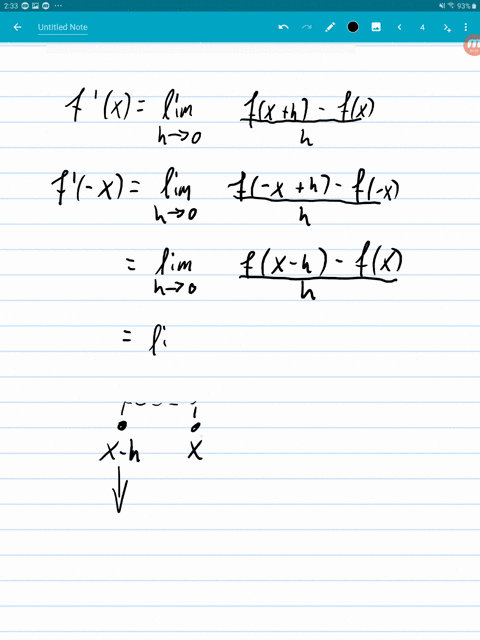 2:33 93%
Untitled Note 4
f'(x) = lim h→0 f(x+h) - f(x) / h
f'(-x) = lim h→0 f(-x+h) - f(-x) / h
= lim h→0 f(x-h) - f(x) / h
= li
x-h x